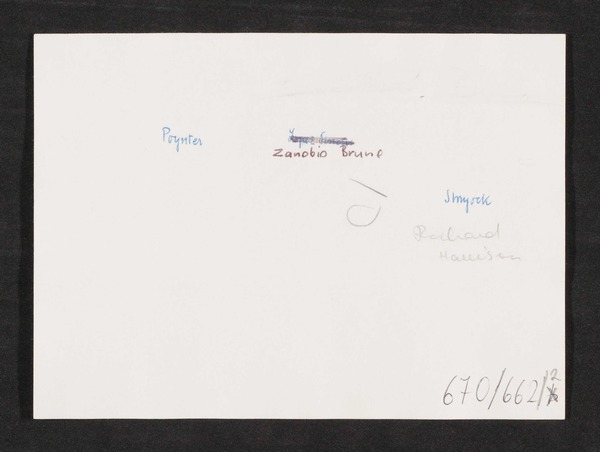 Poynter
Zanobio Brune
Smyock
Richard
Harrison
670/662/12